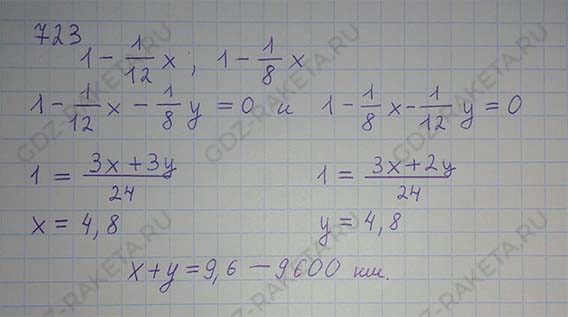 723
1 - 1/12 x ; 1 - 1/8 x
1 - 1/12 x - 1/8 y = 0 и 1 - 1/8 x - 1/12 y = 0
1 = (3x + 3y)/24 1 = (3x + 2y)/24
x = 4,8 y = 4,8
x + y = 9,6 — 9600 км.
GDZ-RAKETA.RU